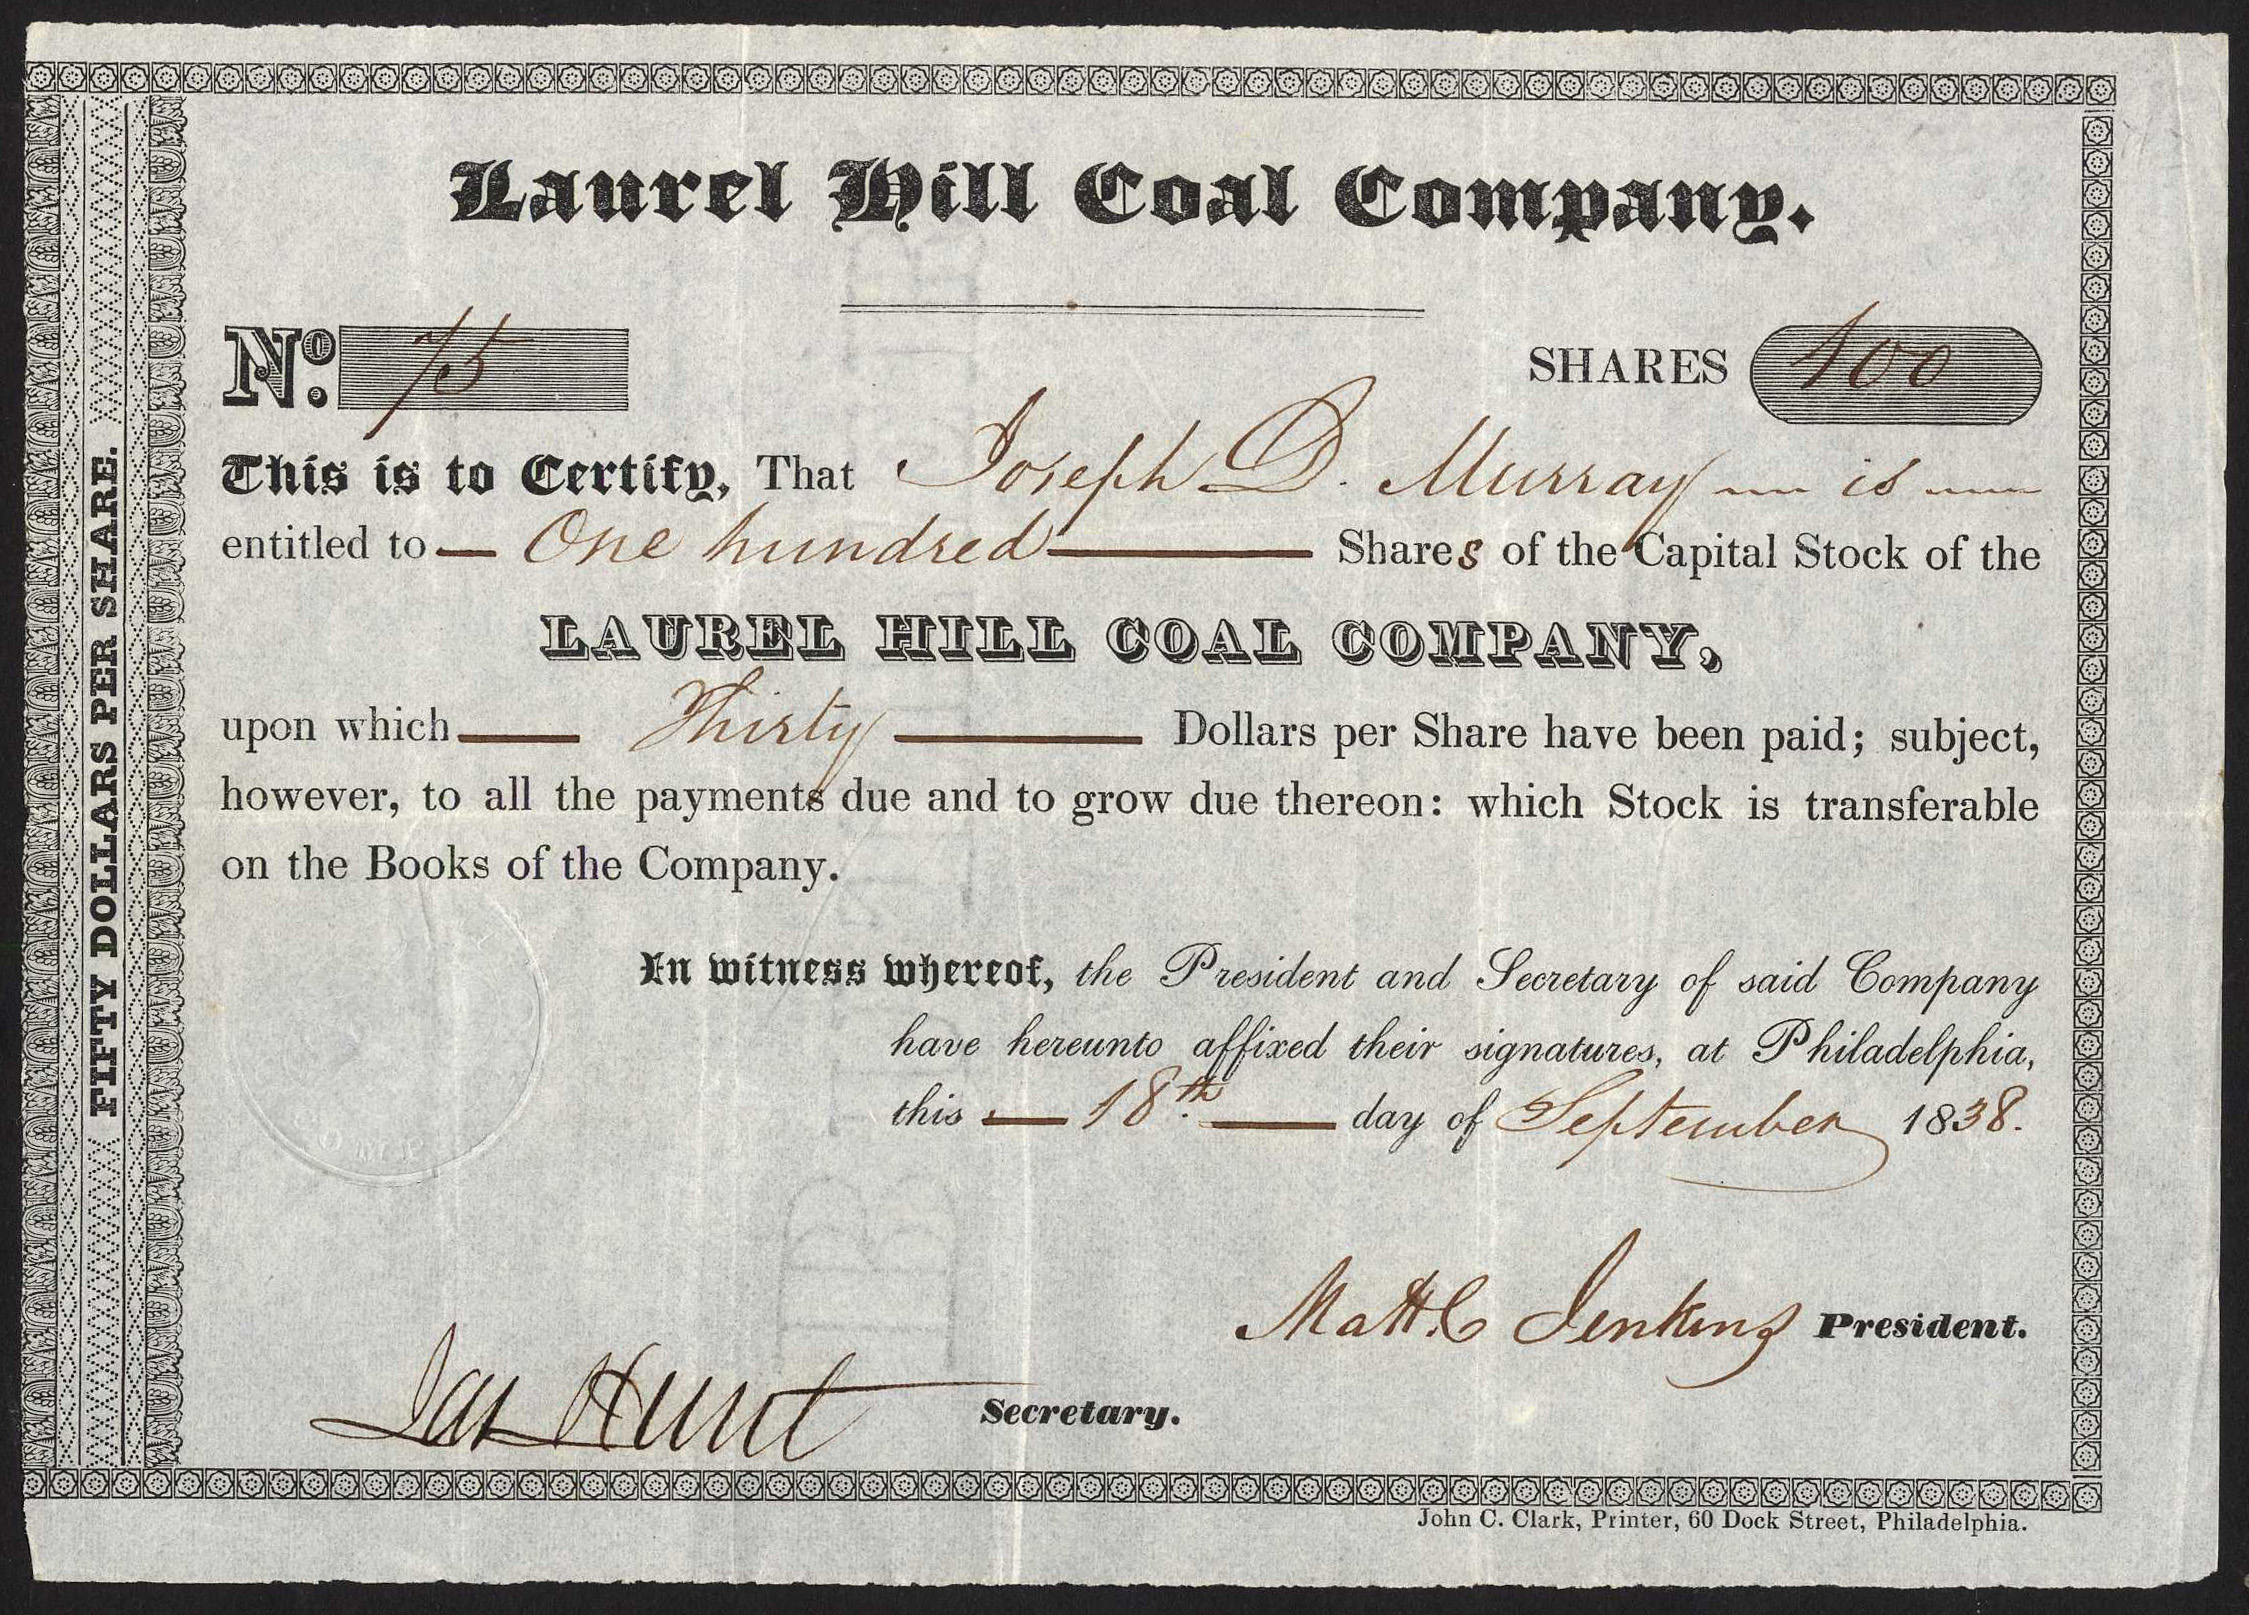 Laurel Hill Coal Company.
No. 75
SHARES 100
This is to Certify, That Joseph D. Murray is
entitled to One hundred Shares of the Capital Stock of the
LAUREL HILL COAL COMPANY,
upon which Thirty Dollars per Share have been paid; subject,
however, to all the payments due and to grow due thereon: which Stock is transferable
on the Books of the Company.
In witness whereof, the President and Secretary of said Company
have hereunto affixed their signatures, at Philadelphia,
this 18th day of September 1838.
Matt. C Jenkins President.
Jas Hunt Secretary.
FIFTY DOLLARS PER SHARE.
John C. Clark, Printer, 60 Dock Street, Philadelphia.